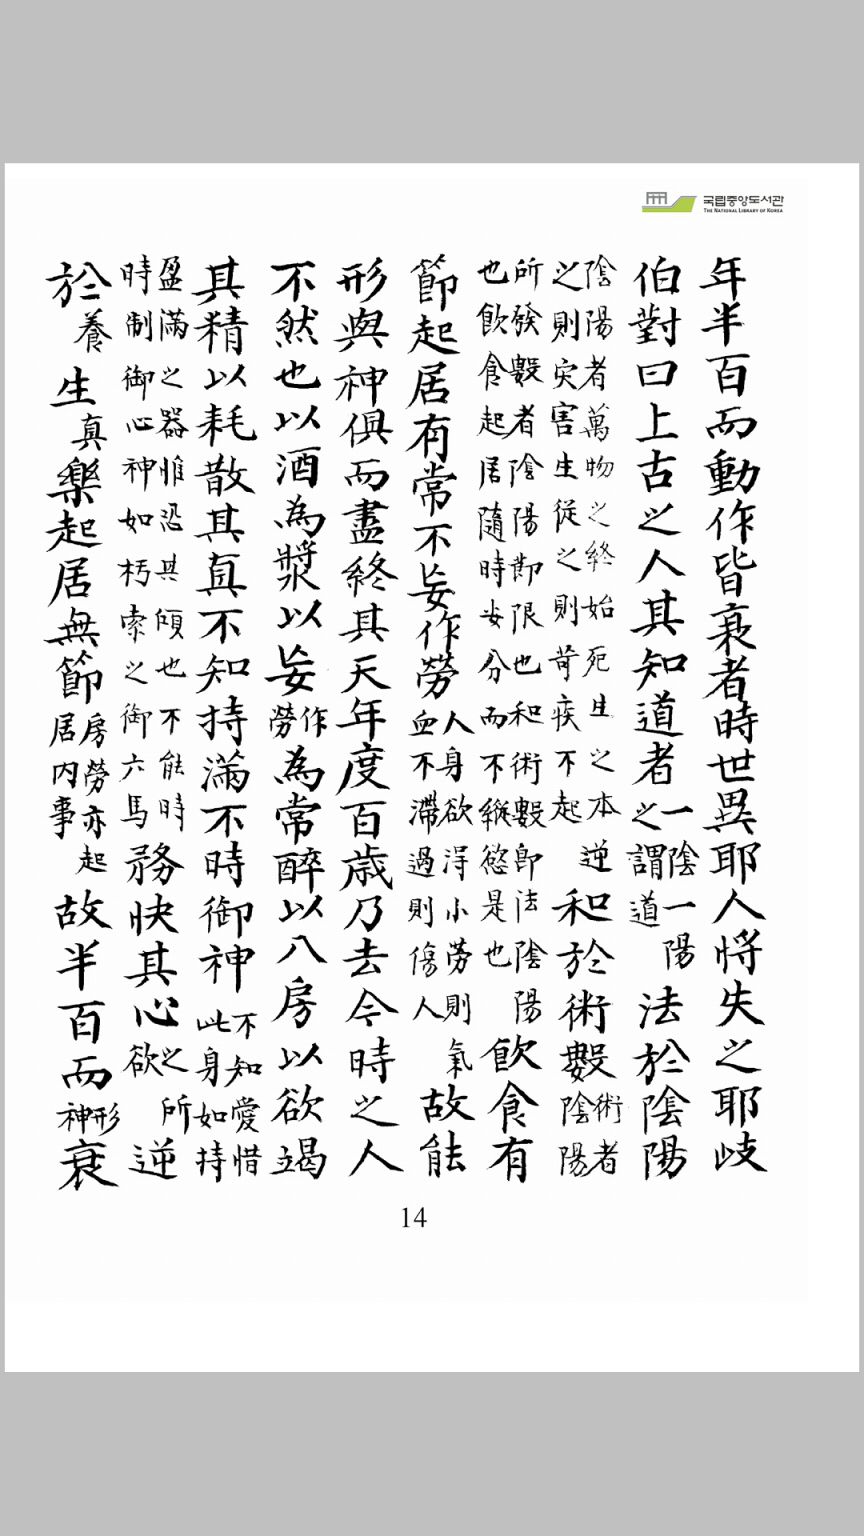 국립중앙도서관
THE NATIONAL LIBRARY OF KOREA
年半百而動作皆衰者時世異耶人將失之耶岐
伯對曰上古之人其知道者一陰一陽之謂道法於陰陽
陰陽者萬物之終始死生之本逆之則灾害生從之則苛疾不起和於術數術者陰陽
所發數者陰陽節限也和術數即法陰陽也飮食起居隨時安分而不縱慾是也飮食有
節起居有常不妄作勞人身欲得小勞則氣血不滯過則傷人故能
形與神俱而盡終其天年度百歲乃去今時之人
不然也以酒為漿以妄作勞為常醉以入房以欲竭
其精以耗散其真不知持滿不時御神不知愛惜此身如持
盈滿之器惟恐其傾也不能時時制御心神如朽索之御六馬務快其心之所欲逆
於養生真樂起居無節房勞亦起居內事故半百而形神衰
14